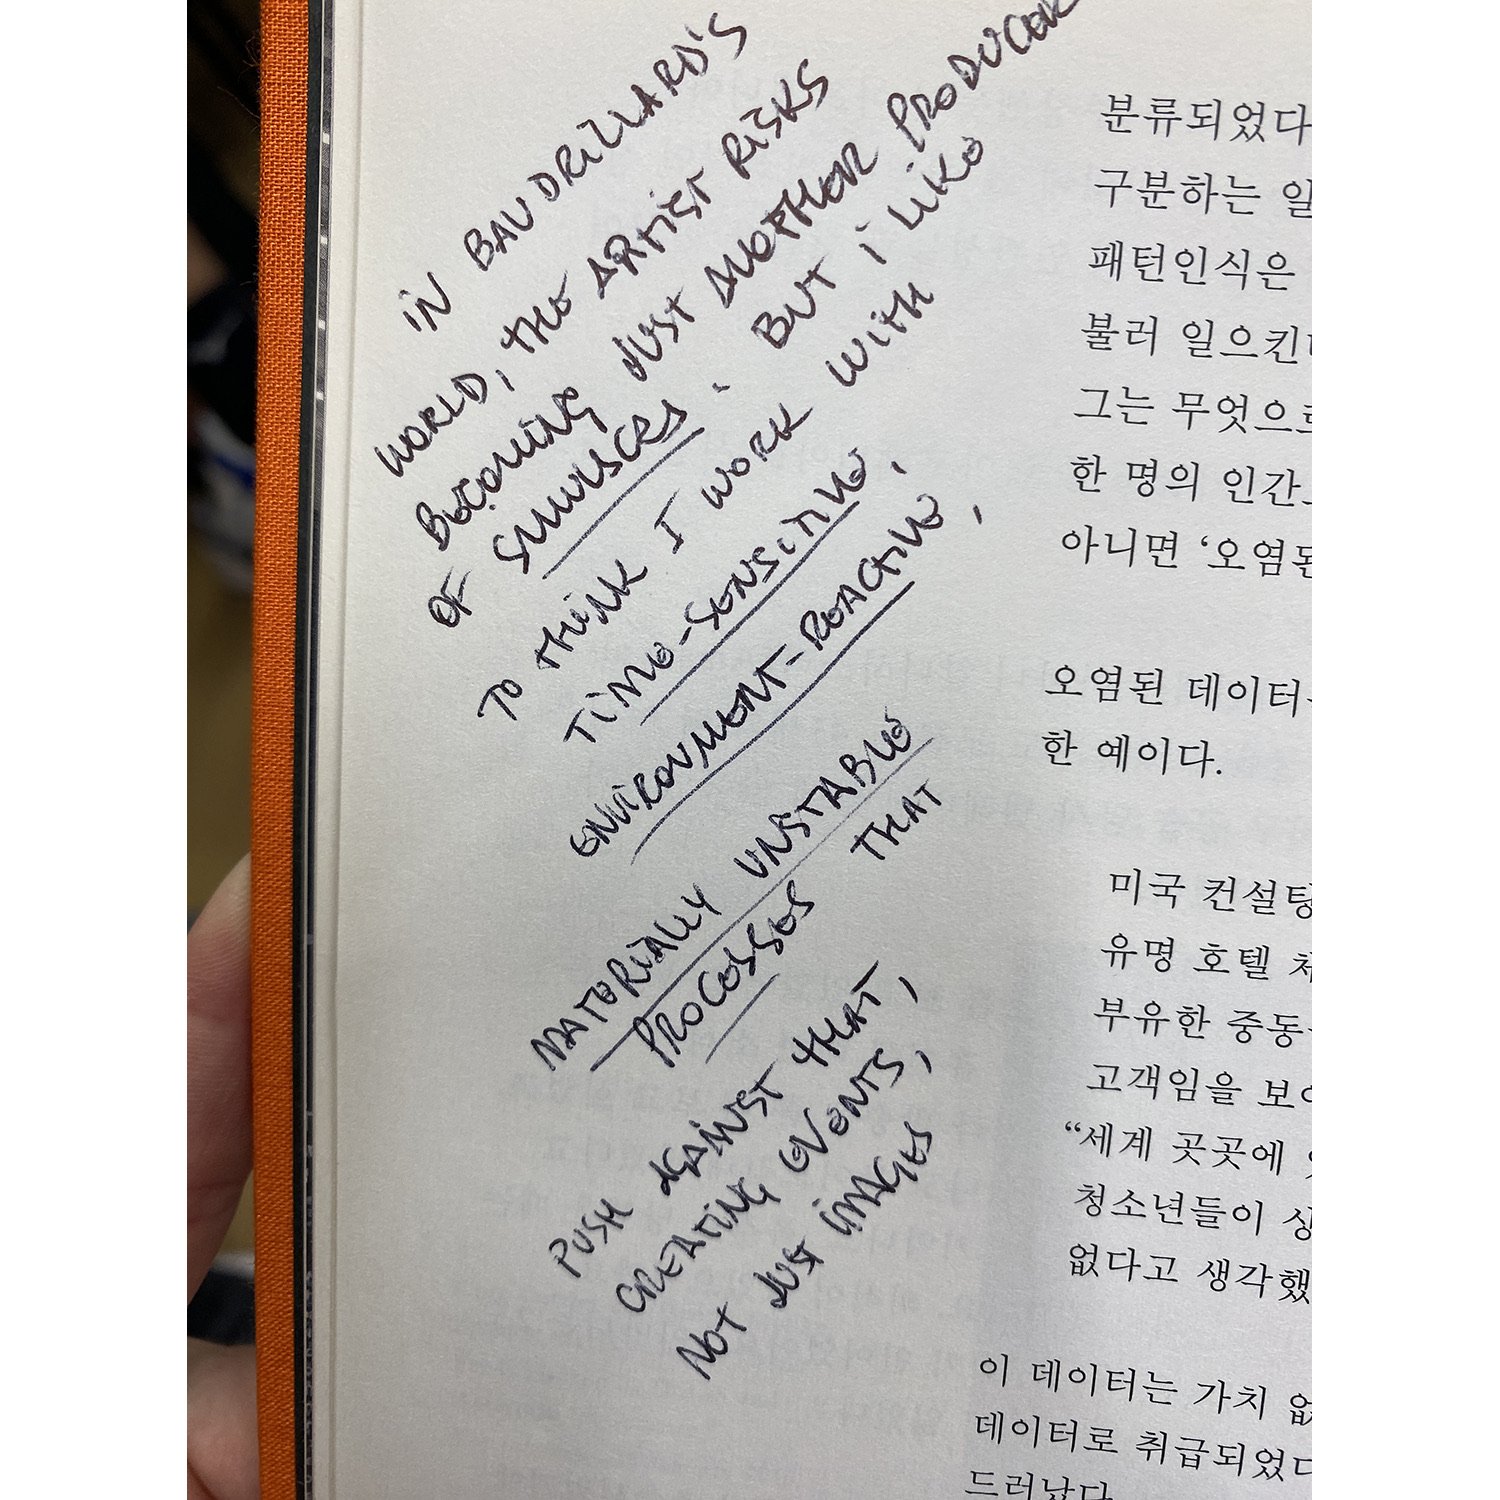 IN BAUDRILLARD'S
WORLD, THE ARTIST RISKS
BECOMING JUST ANOTHER PRODUCER
OF SIMULACRA. BUT I LIKE
TO THINK I WORK WITH
TIME-SENSITIVE,
ENVIRONMENT-REACTIVE,
MATERIALLY UNSTABLE
PROCESSES THAT
PUSH AGAINST THAT,
CREATING EVENTS,
NOT JUST IMAGES
분류되었다
구분하는 일
패턴인식은
불러 일으킨
그는 무엇으로
한 명의 인간
아니면 ‘오염된
오염된 데이터
한 예이다.
미국 컨설팅
유명 호텔 체
부유한 중동
고객임을 보여
“세계 곳곳에
청소년들이 상
없다고 생각했
이 데이터는 가치 없
데이터로 취급되었다
드러났다